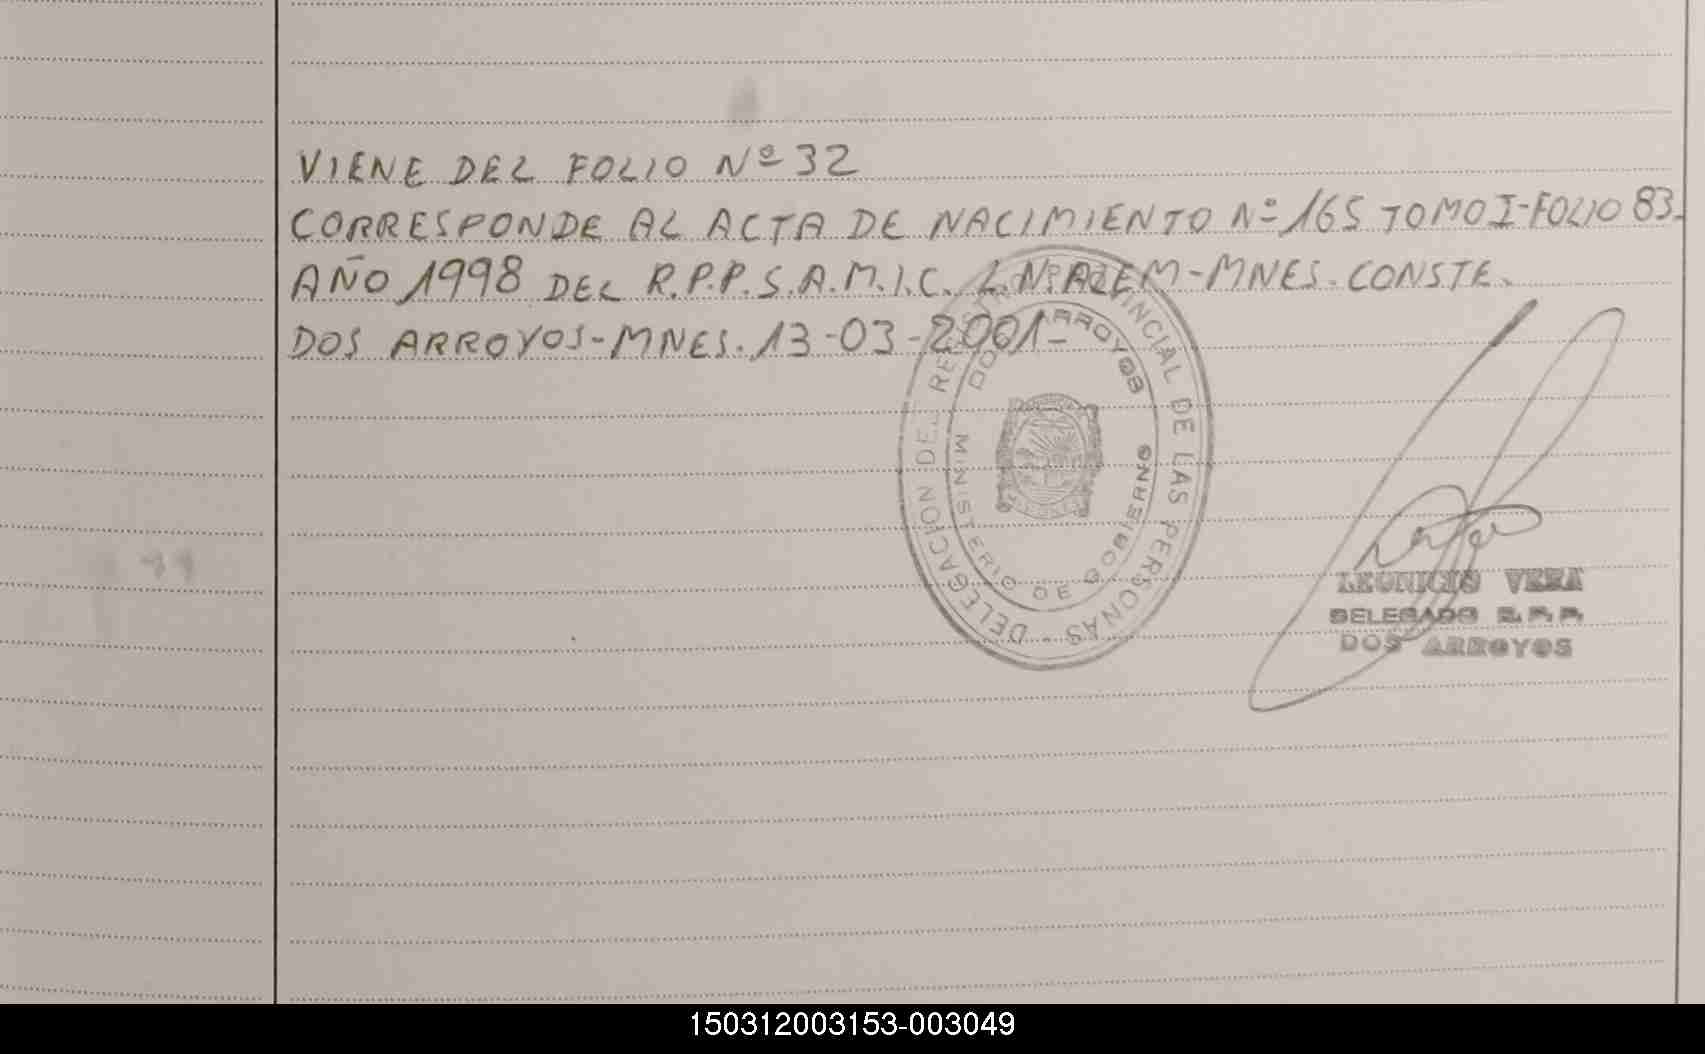 VIENE DEL FOLIO Nº 32
CORRESPONDE AL ACTA DE NACIMIENTO Nº 165 TOMO I-FOLIO 83-
AÑO 1998 DEL R.P.P.S.A.M.I.C. L.N.ALEM-MNES. CONSTE.
DOS ARROYOS-MNES. 13-03-2001-
DELEGACION DEL REGISTRO PROVINCIAL DE LAS PERSONAS -
DOS ARROYOS
MINISTERIO DE GOBIERNO
MISIONES
LEONICIO VERA
DELEGADO R.P.P.
DOS ARROYOS
150312003153-003049